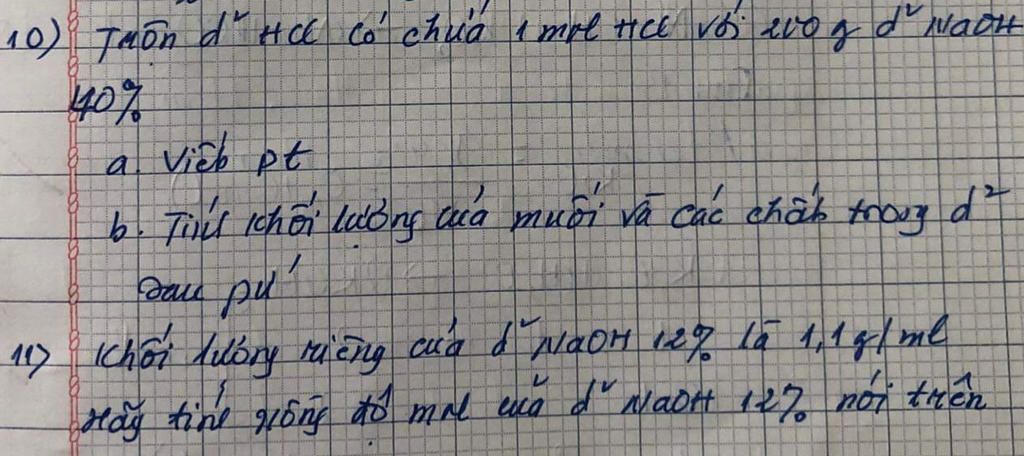 10) Trộn d² HCl có chứa 1 mol HCl với 200 g d² NaOH
40%
a. Viết pt
b. Tính khối lượng của muối và các chất trong d²
sau pứ
11) Khối lượng riêng của d² NaOH 12% là 1,1 g/ml
Hãy tính nồng độ mol của d² NaOH 12% nói trên